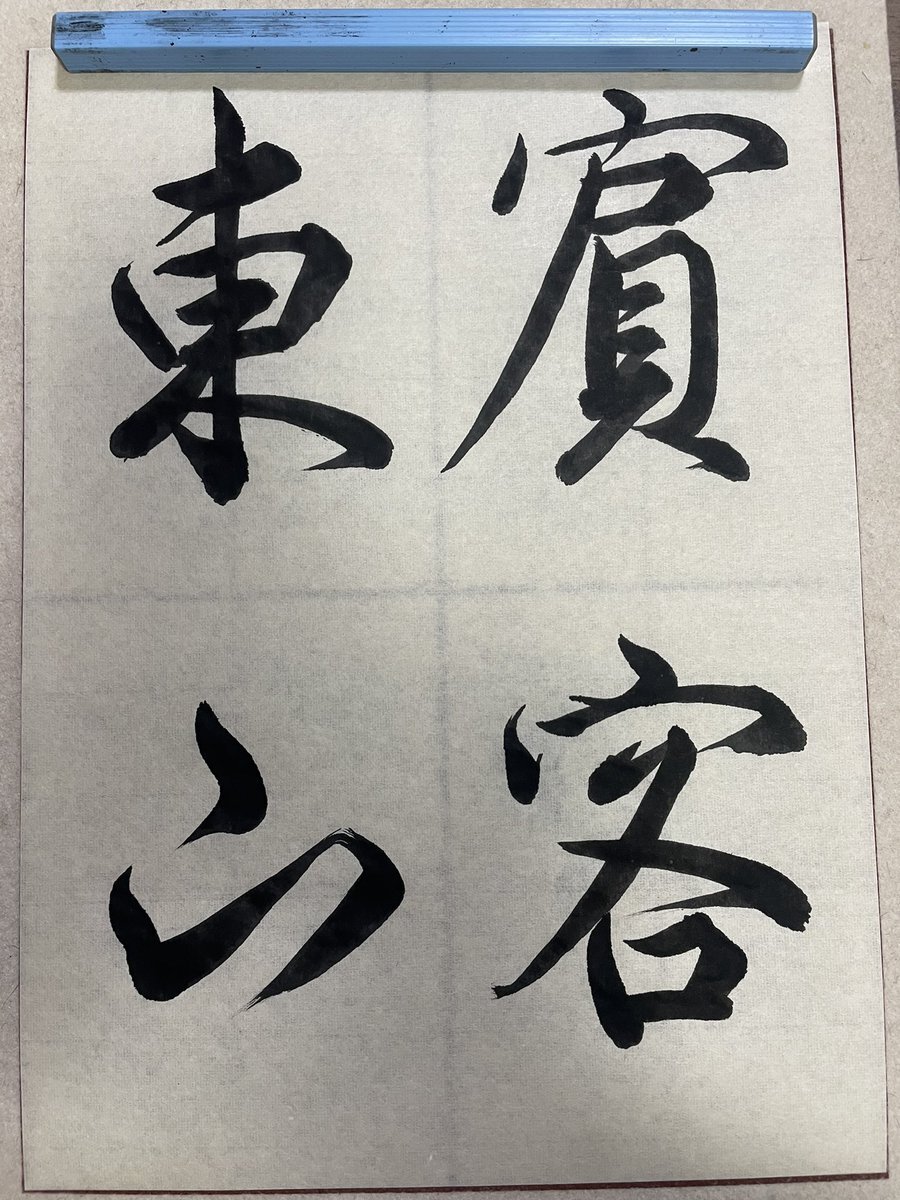 賓客
東山